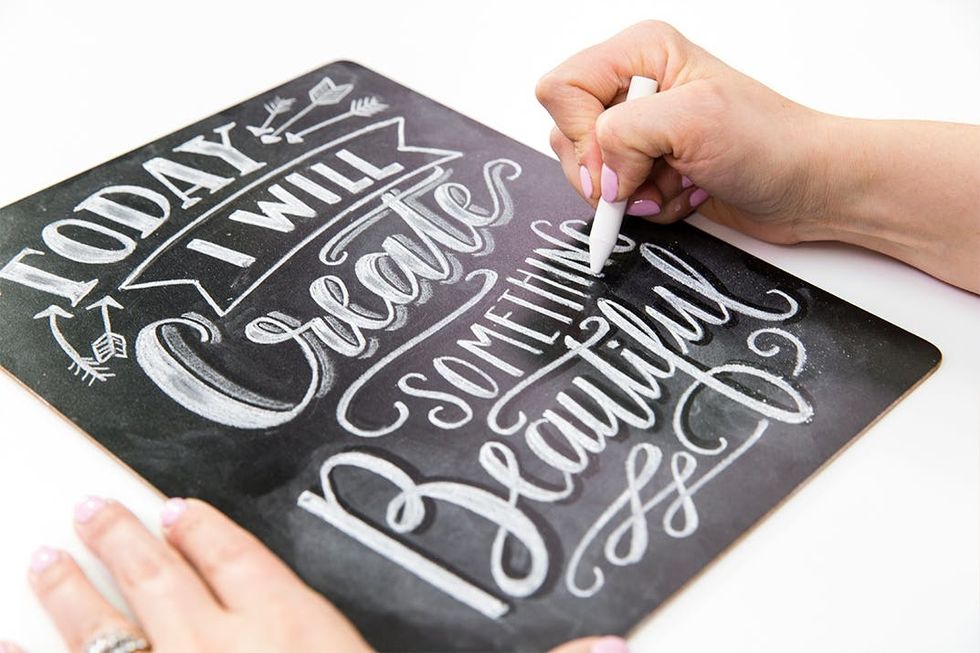 TODAY
I WILL
Create
SOMETHING
Beautiful